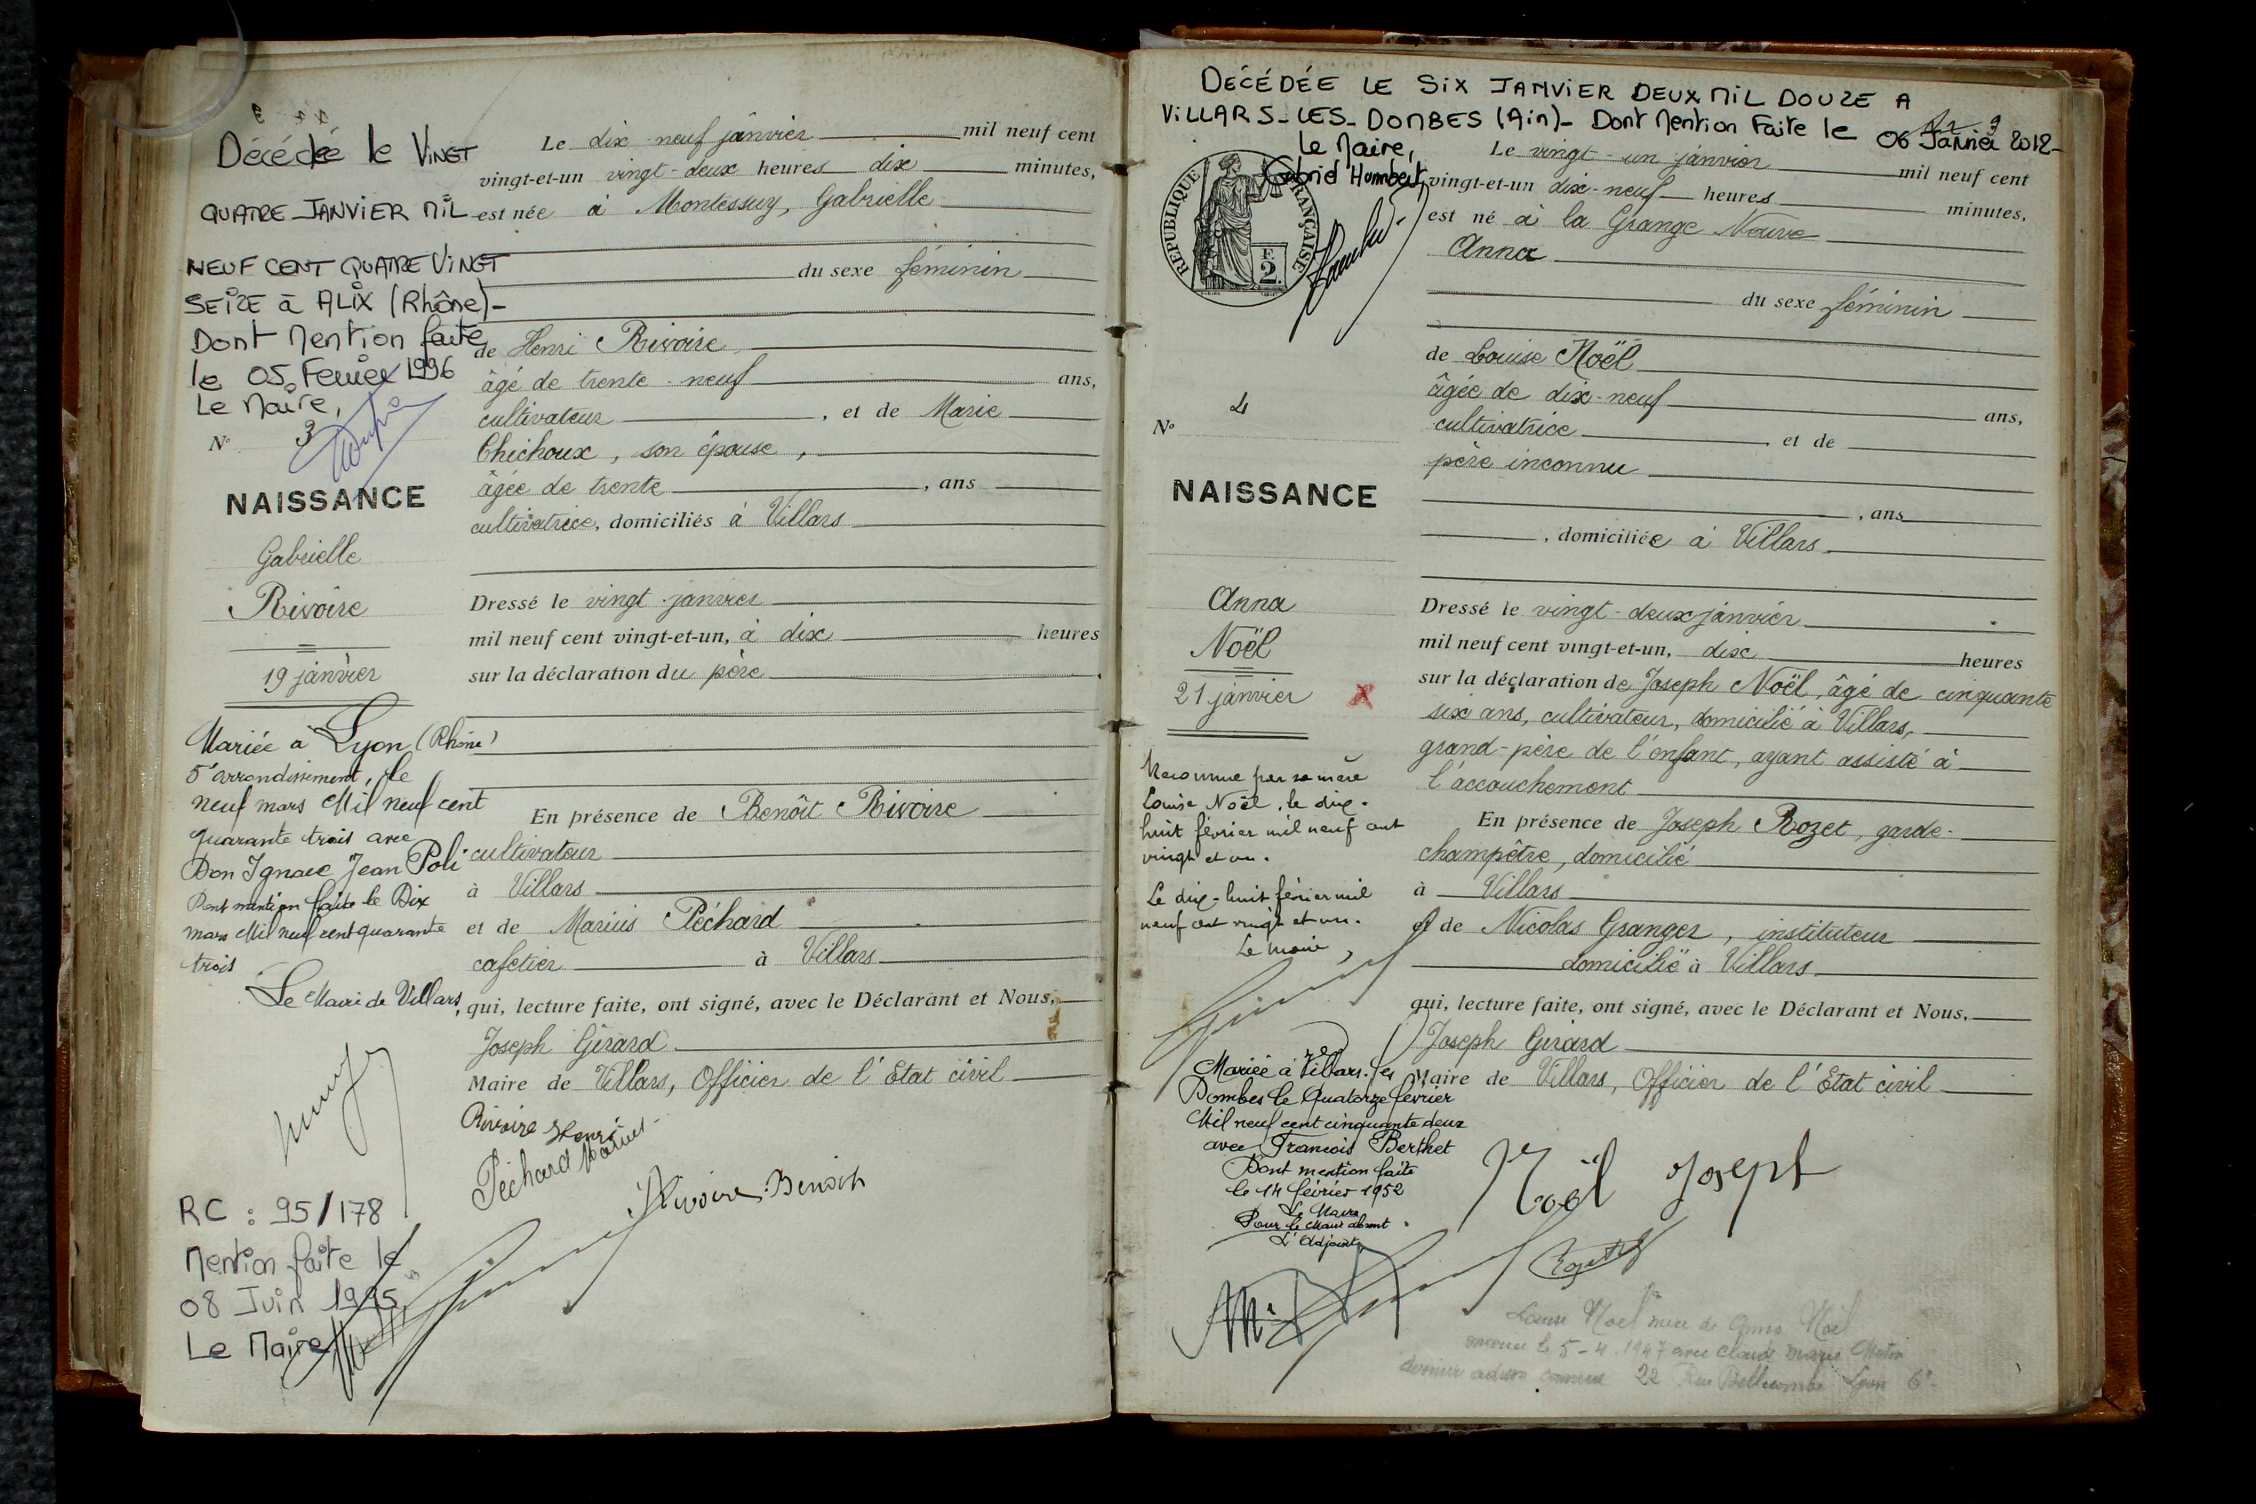 Décédée le VINGT
QUATRE JANVIER MIL
NEUF CENT QUATRE VINGT
SEIZE à ALIX (Rhône)-
Dont Mention faite
le 05 Fevrier 1996
Le Maire,
N° 3
NAISSANCE
Gabrielle
Rivoire
19 janvier
Mariée à Lyon (Rhône)
5e arrondissement, le
neuf mars Mil neuf cent
quarante trois avec
Don Ignace Jean Poli
Dont mention faite le Dix
mars Mil neuf cent quarante
trois
Le Maire de Villars,
RC : 95/178
Mention faite le
08 Juin 1995
Le Maire
Le dix-neuf janvier mil neuf cent
vingt-et-un vingt-deux heures dix minutes,
est née à Montessuy, Gabrielle
du sexe féminin
de Henri Rivoire
âgé de trente-neuf ans,
cultivateur, et de Marie
Chichoux, son épouse,
âgée de trente, ans
cultivatrice, domiciliés à Villars
Dressé le vingt janvier
mil neuf cent vingt-et-un, à dix heures
sur la déclaration du père
En présence de Benôit Rivoire
cultivateur
à Villars
et de Marius Péchard
cafetier à Villars
qui, lecture faite, ont signé, avec le Déclarant et Nous,
Joseph Girard
Maire de Villars, Officier de l'Etat civil
Rivoire Henri
Péchard Marius
Rivoire Benoit
DÉCÉDÉE LE SIX JANVIER DEUX MIL DOUZE A
VILLARS-LES-DOMBES (Ain)- Dont Mention Faite le 06 Janvier 2012-
Le Maire,
Gabriel Humbert,
RÉPUBLIQUE FRANÇAISE
F.
2.
N° 4
NAISSANCE
Anna
Noël
21 janvier
Reconnue par sa mère
Louise Noël, le dix-
huit février mil neuf cent
vingt et un.
Le dix-huit février mil
neuf cent vingt et un.
Le maire,
Mariée à Villars-les
Dombes le Quatorze février
Mil neuf cent cinquante deux
avec François Berthet
Dont mention faite
le 14 février 1952
Le Maire
Pour le Maire absent
L'Adjoint
Le vingt-un janvier mil neuf cent
vingt-et-un dix-neuf heures minutes,
est né à la Grange Neuve
Anna
du sexe féminin
de Louise Noël
âgée de dix-neuf ans,
cultivatrice et de
père inconnu
, ans
, domiciliée à Villars
Dressé le vingt-deux janvier
mil neuf cent vingt-et-un, dix heures
sur la déclaration de Joseph Noël, âgé de cinquante
six ans, cultivateur, domicilié à Villars,
grand-père de l'enfant, ayant assisté à
l'accouchement
En présence de Joseph Rozet, garde-
champêtre, domicilié
à Villars
et de Nicolas Granger, instituteur
domicilié à Villars
qui, lecture faite, ont signé, avec le Déclarant et Nous,
Joseph Girard
Maire de Villars, Officier de l'Etat civil
Noël Joseph
Louise Noel mère de Anna Noel
le 5-4-1947 avec Claude Marie
dernière adresse connue 22 Rue Bellecombe Lyon 6e